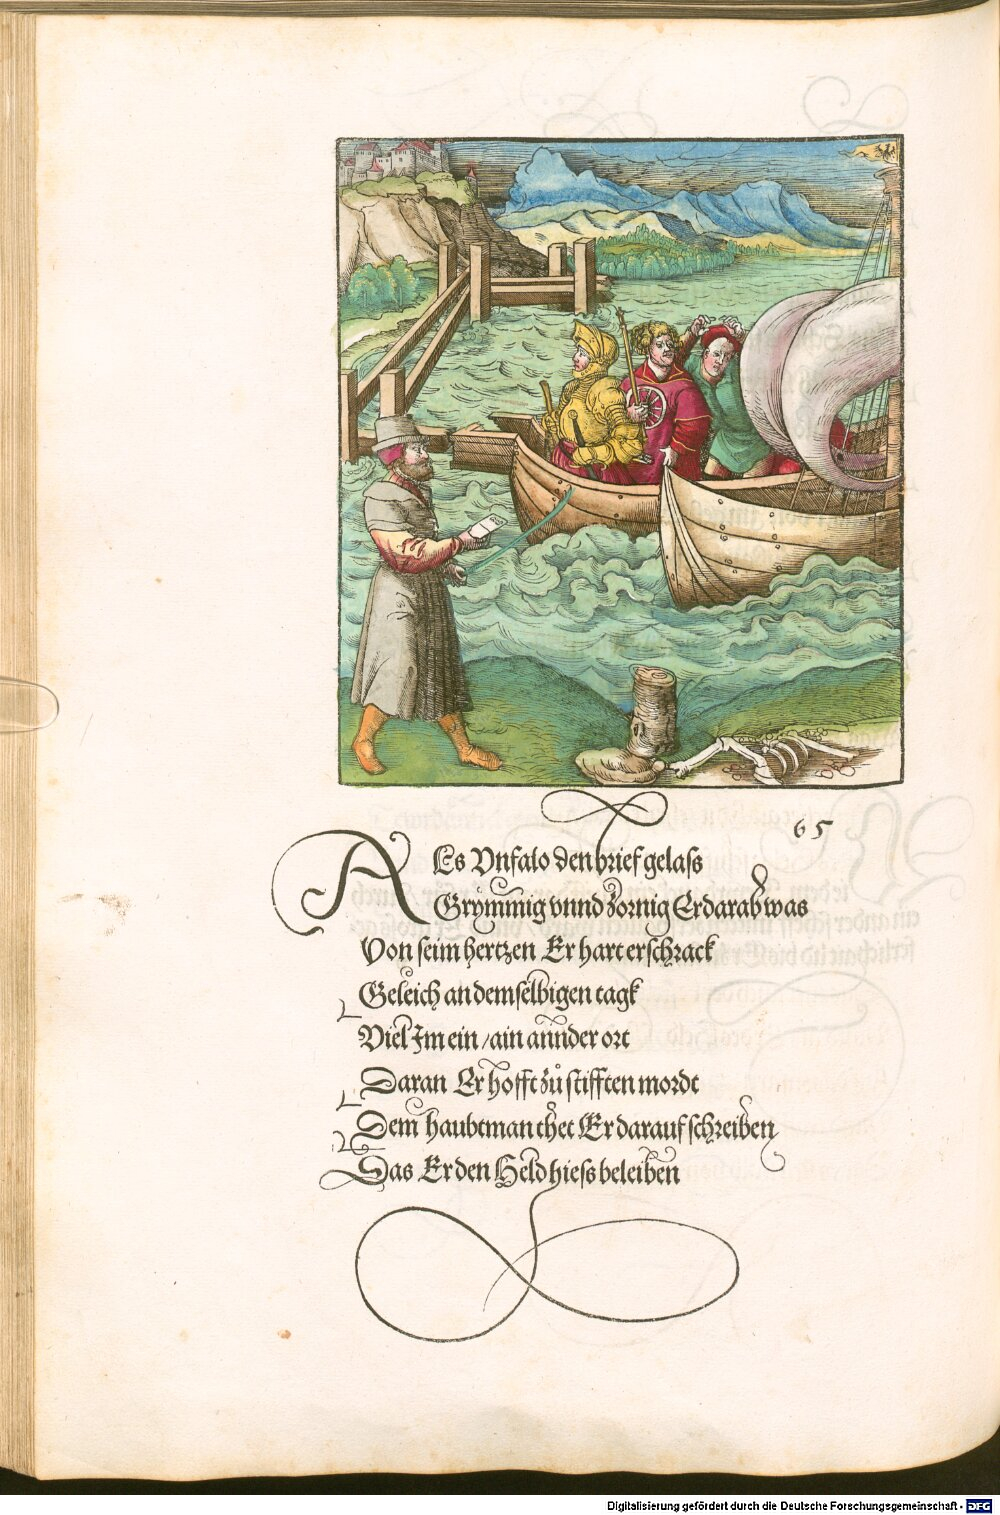 65
Als Vnfalo den brief gelass
Grymmig vnnd zornig Er darab was
Von seim hertzen Er hart erschrack
Geleich an demselbigen tagk
Viel Im ein / ain annder ort
Daran Er hofft zů stifften mordt
Dem haubtman thet Er darauf schreiben
Das Er den Held hiess beleiben
Digitalisierung gefördert durch die Deutsche Forschungsgemeinschaft - DFG